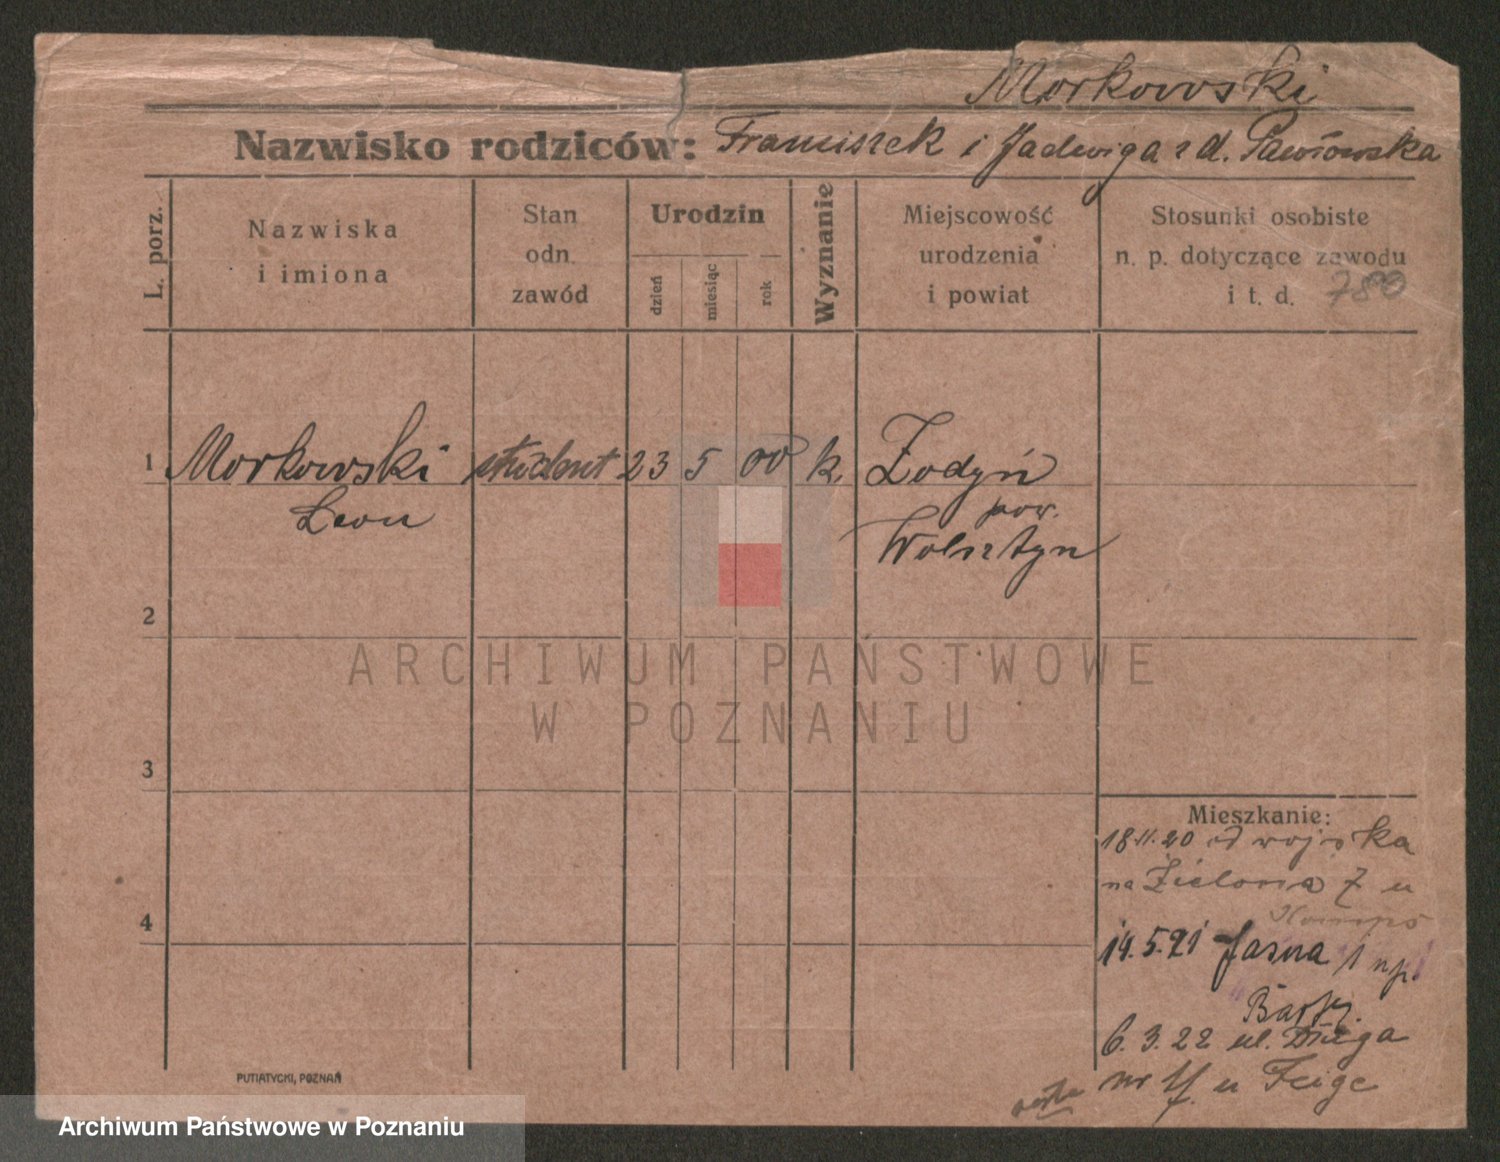 Morkowski
Nazwisko rodziców: Franciszek i Jadwiga z d. Pawłowska
L. porz.
Nazwiska
i imiona
Stan
odn.
zawód
Urodzin
dzień
miesiąc
rok
Wyznanie
Miejscowość
urodzenia
i powiat
Stosunki osobiste
n. p. dotyczące zawodu
i t. d.
780
1 Morkowski student 23 5 00 k. Zodyń
Leon pow.
Wolsztyn
2
ARCHIWUM PAŃSTWOWE
W POZNANIU
3
Mieszkanie:
18.11.20 od wojska
na Zielona 7 u
4
14.5.21 Jasna 1 up.
6.3.22 ul. Długa
nr u Feige
PUTIATYCKI, POZNAŃ
Archiwum Państwowe w Poznaniu